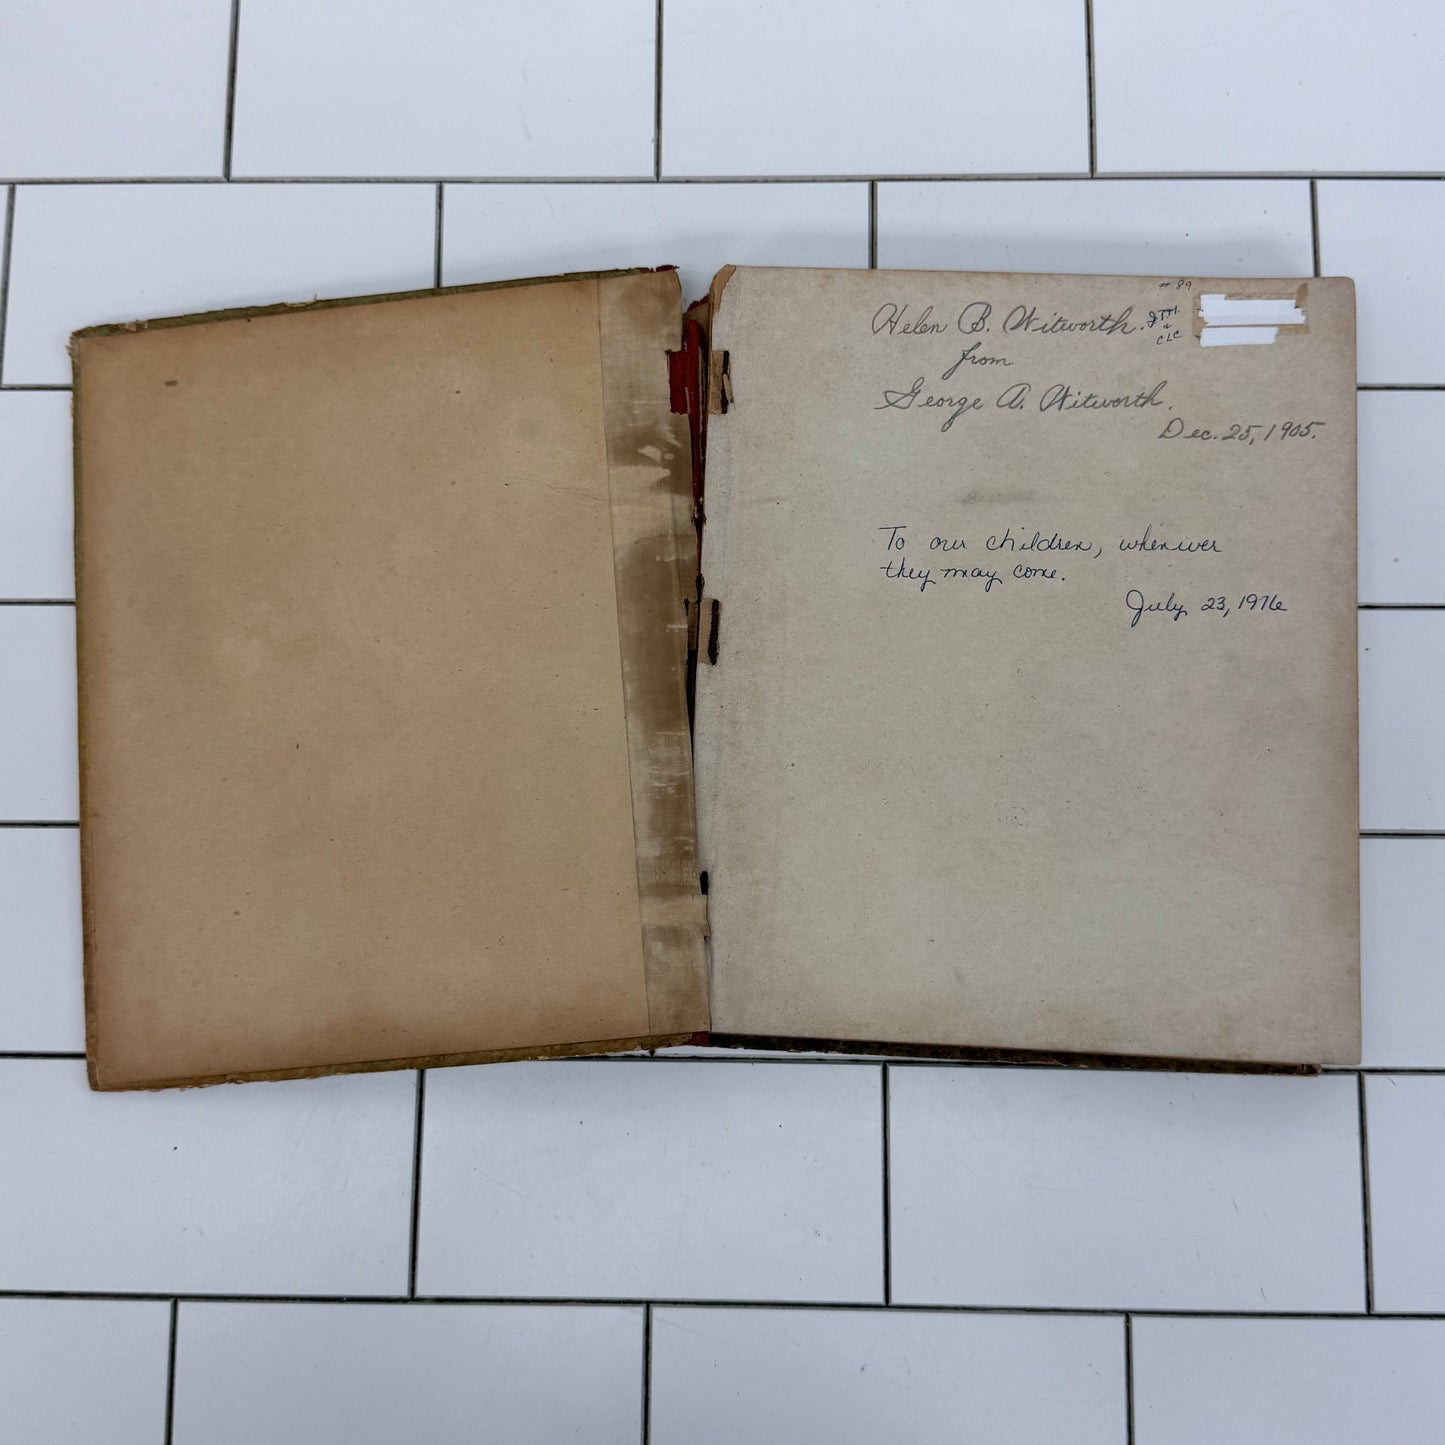 # 89
Helen B. Witworth.
JTH.
&
CLC
from
George A. Witworth.
Dec. 25, 1905.
To our children, whenever
they may come.
July 23, 1976